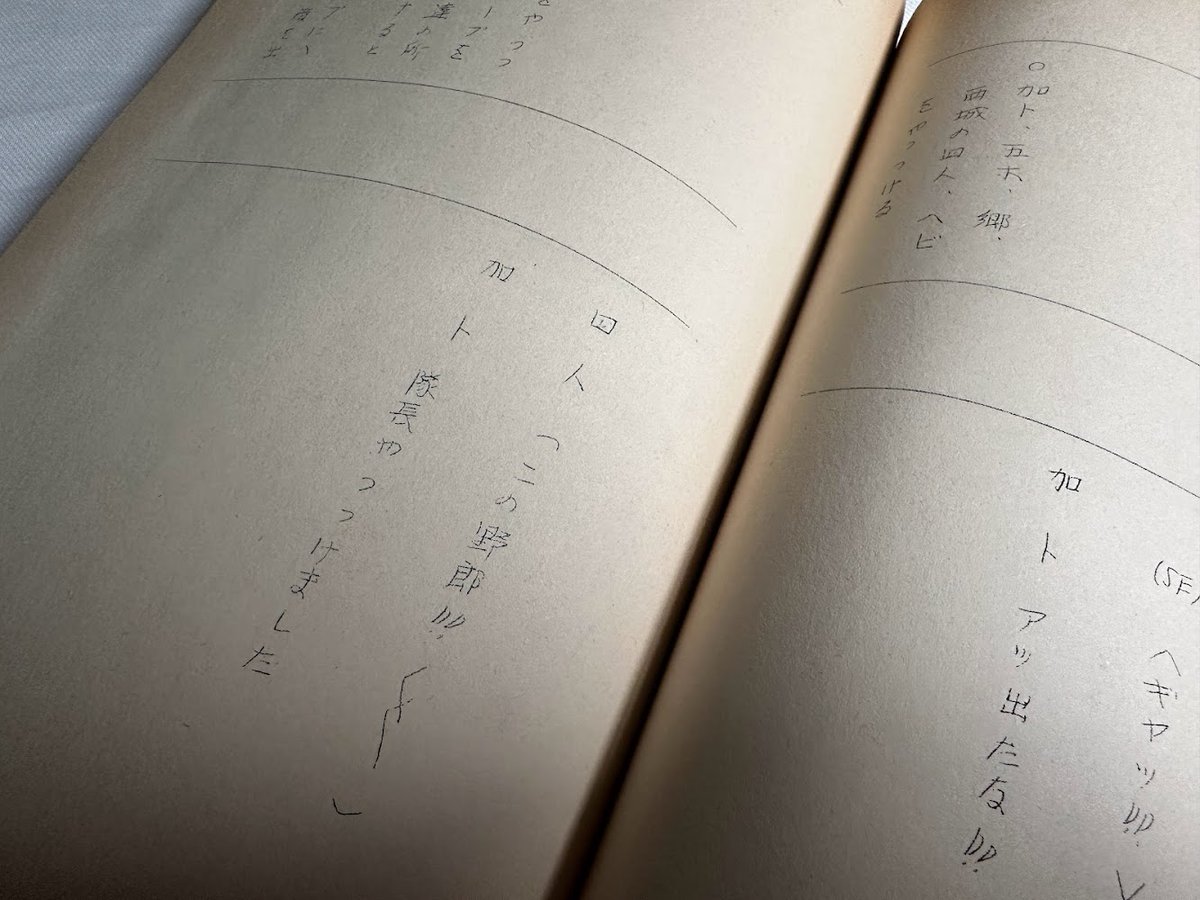 ○加ト、五大、郷、
西城の四人、ヘビ
をやっつける
(SF) 〈ギャッ!!〉
加ト アッ出たな!!
をやっつ
ープを
達の所
すると
四人 「この野郎!!
加ト 隊長やっつけました」